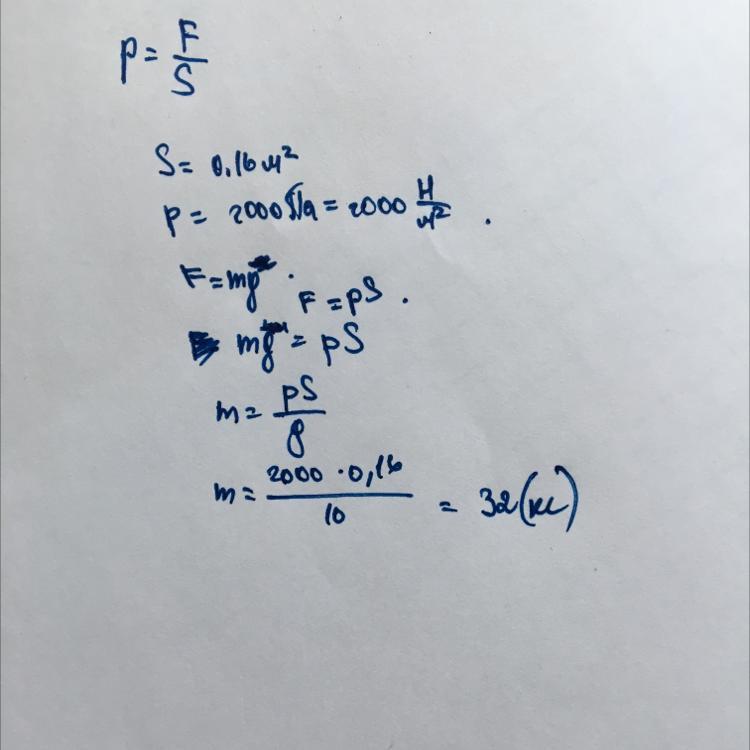 p = F/S
S = 0,16 м²
p = 2000 Па = 2000 Н/м² .
F = mg .
F = pS .
mg = pS
m = pS/g
m = 2000 · 0,16/10 = 32 (кг)